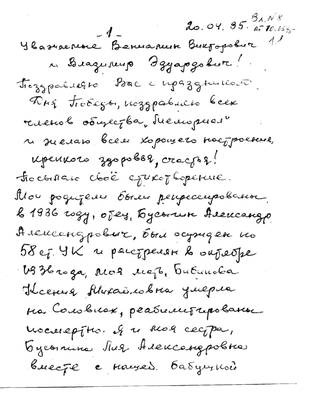 -1-
20.04.95.
Вх. №8
Уважаемые Вениамин Викторович
и Владимир Эдуардович!
Поздравляю Вас с праздником
Дня Победы, поздравляю всех
членов общества „Мемориал"
и желаю всем хорошего настроения,
крепкого здоровья, счастья!
Посылаю своё стихотворение.
Мои родители были репрессированы
в 1936 году, отец, Бусыгин Александр
Александрович, был осужден по
58 ст. УК и расстрелян в октябре
1936 года, моя мать, Бибикова
Ксения Михайловна умерла
на Соловках, реабилитированы
посмертно. Я и моя сестра,
Бусыгина Ия Александровна
вместе с нашей бабушкой